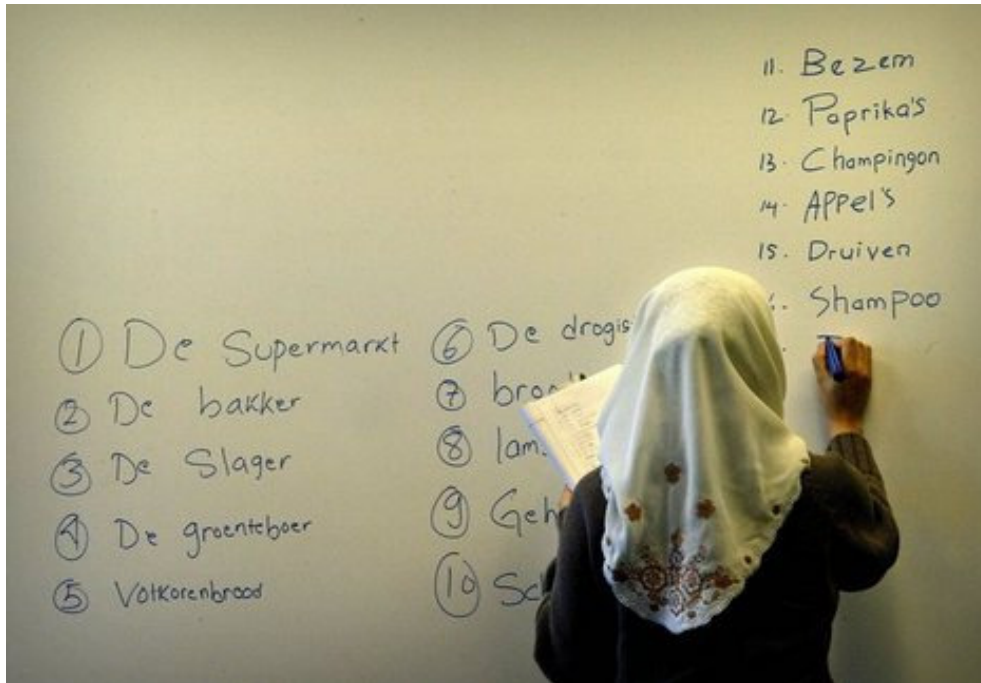 ① De Supermarkt
② De bakker
③ De Slager
④ De groenteboer
⑤ Volkorenbrood
⑥ De
⑦
⑧
⑨
⑩
11. Bezem
12. Paprika's
13. Champingon
14. Appel's
15. Druiven
Shampoo